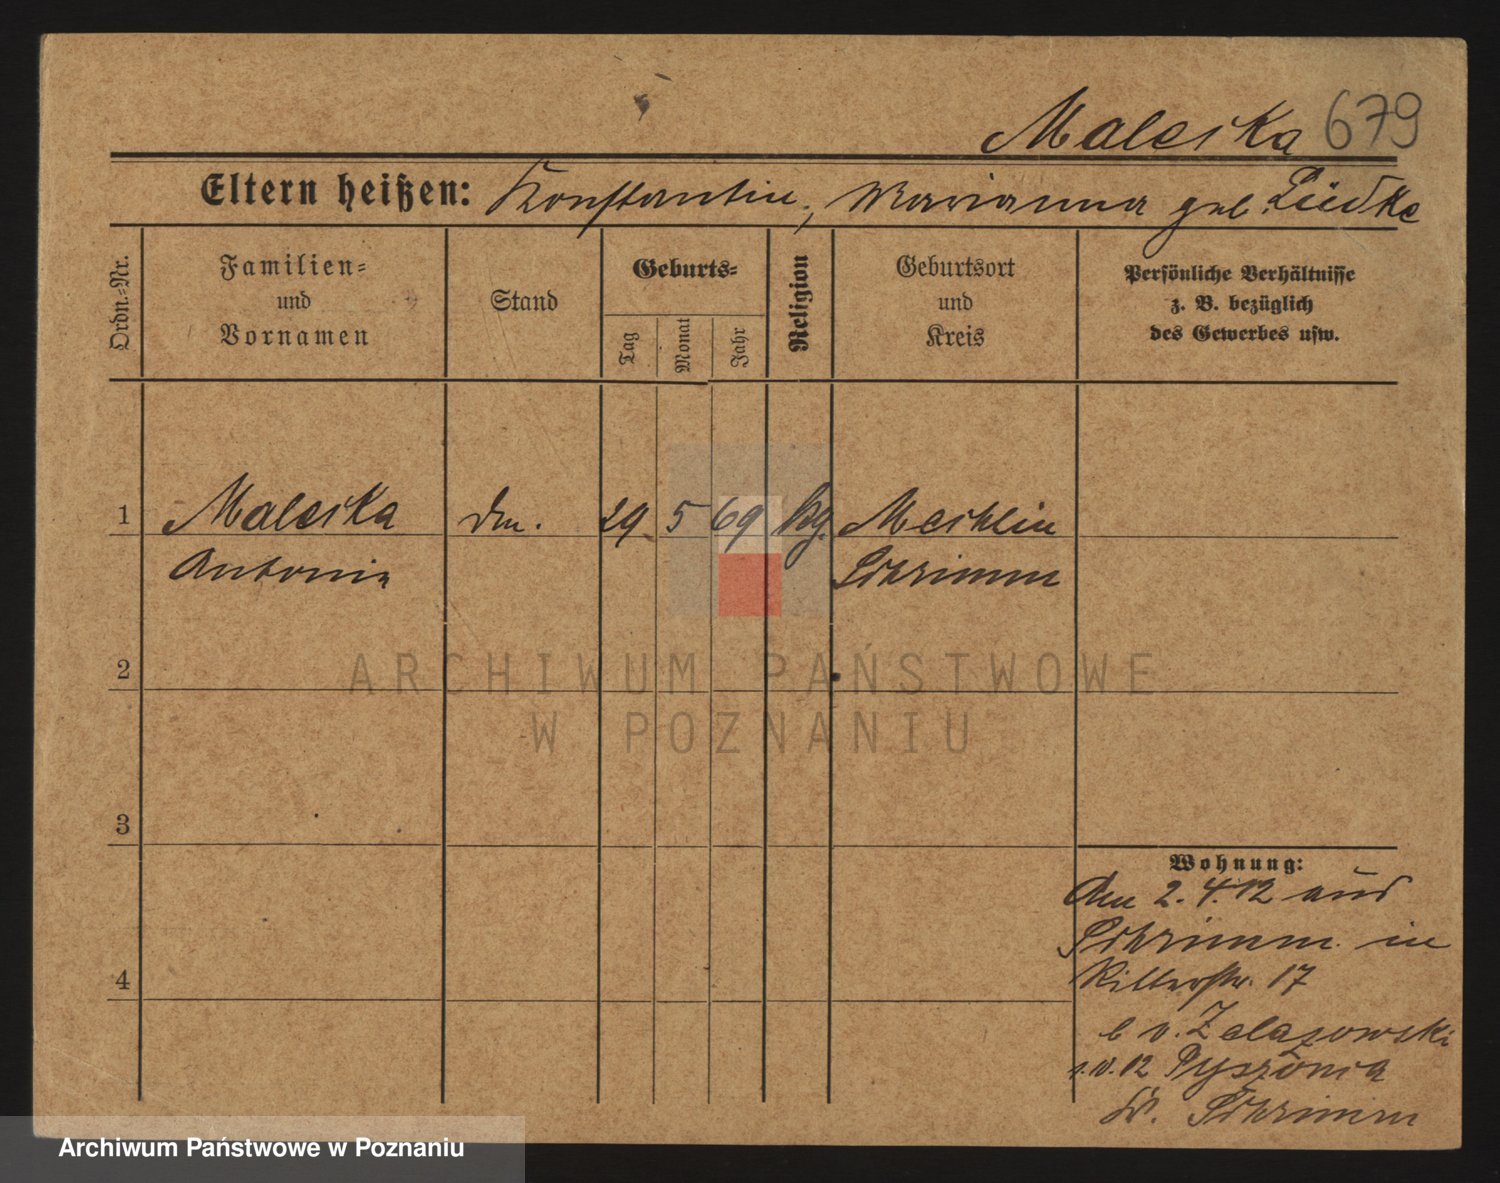 Maleska 679
Eltern heißen: Konstantin, Marianna geb. Lüdke
Ordn.-Nr.
Familien-
und
Vornamen
Stand
Geburts-
Tag
Monat
Jahr
Religion
Geburtsort
und
Kreis
Persönliche Verhältnisse
z. B. bezüglich
des Gewerbes usw.
1 Maleska 29. 5 69 Mechlin
Antonie Schrimm
2
3
4
ARCHIWUM PAŃSTWOWE
W POZNANIU
Wohnung:
Am 2. 4. 12 aus
Schrimm in
Ritterstr. 17
b v. Zelazowski
12
Schrimm
Archiwum Państwowe w Poznaniu